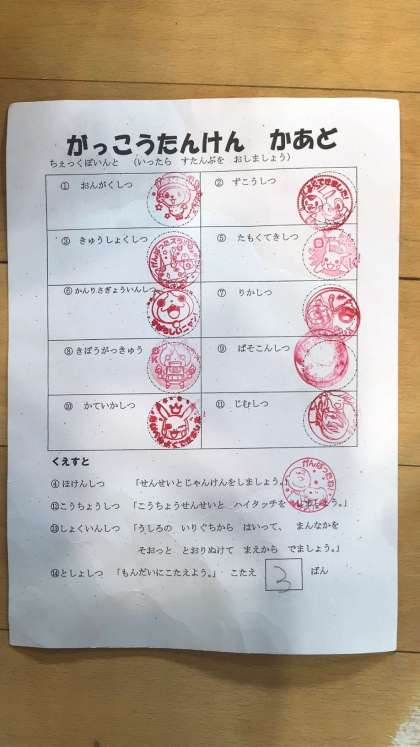 がっこうたんけん かあど
ちぇっくぽいんと （いったら すたんぷを おしましょう）
① おんがくしつ
② ずこうしつ
③ きゅうしょくしつ
⑤ たもくてきしつ
⑥ かんりさぎょういんしつ
⑦ りかしつ
⑧ きぼうがっきゅう
⑨ ぱそこんしつ
⑩ かていかしつ
⑪ じむしつ
くえすと
④ ほけんしつ 「せんせいとじゃんけんをしましょう。」
がんばったね
⑫こうちょうしつ 「こうちょうせんせいと ハイタッチを しましょう。」
⑬しょくいんしつ 「うしろの いりぐちから はいって、 まんなかを
そおっと とおりぬけて まえから でましょう。」
⑭としょしつ 「もんだいにこたえよう。」 こたえ 3 ばん